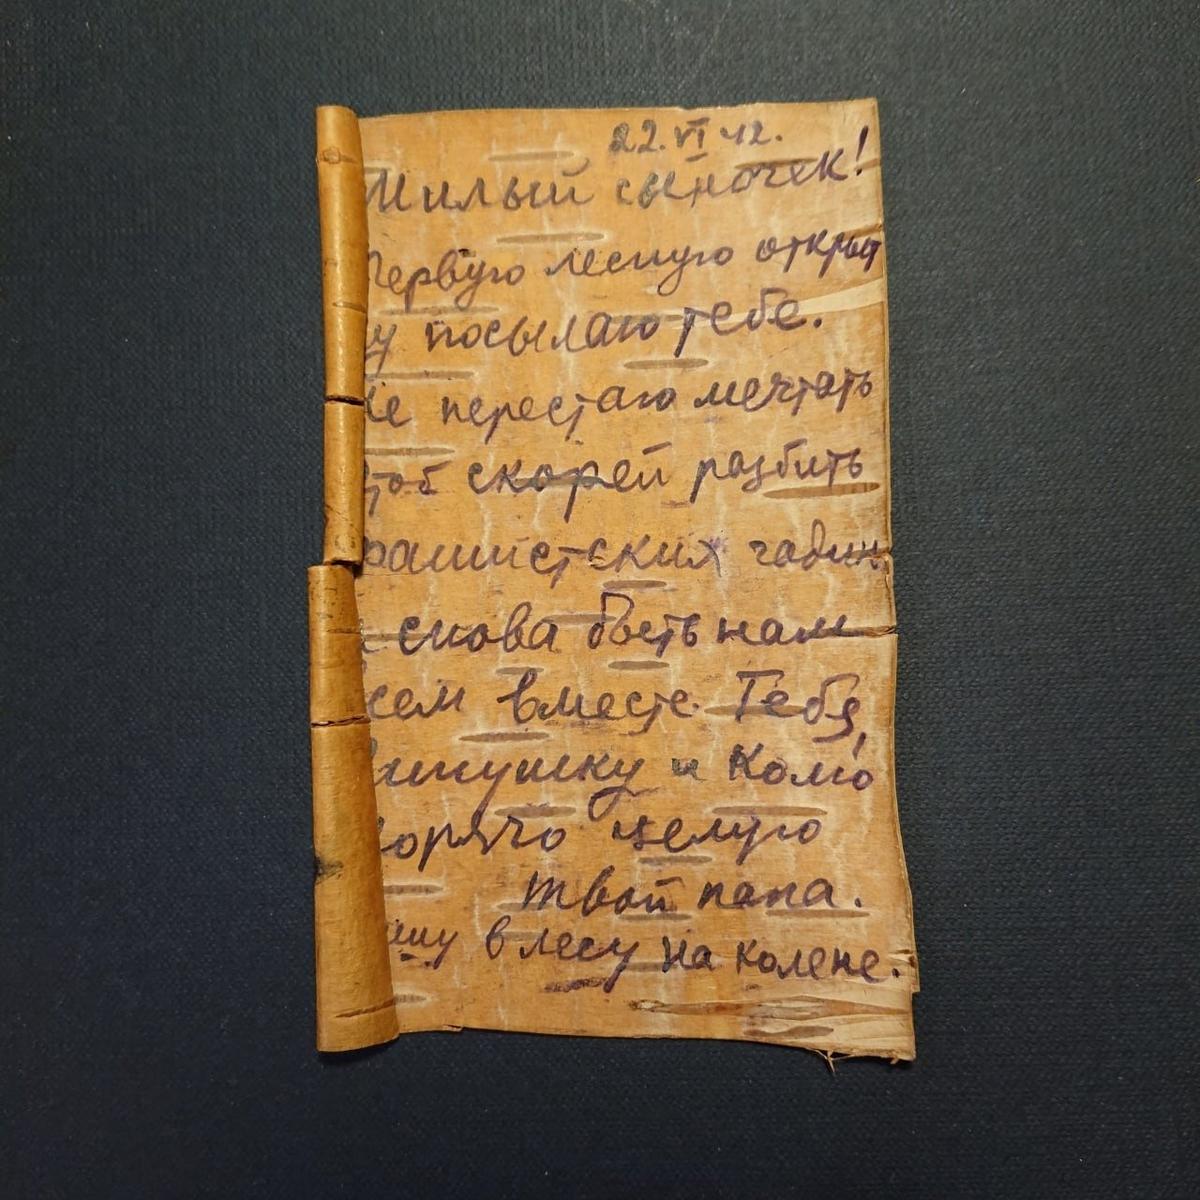 22.VI 42.
Милый сыночек!
Первую лесную открыт
ку посылаю тебе.
Не перестаю мечтать
чтоб скорей разбить
фашистских гадин
и снова быть нам
всем вместе. Тебя,
и Колю
горячо целую
твой папа.
Пишу в лесу на колене.